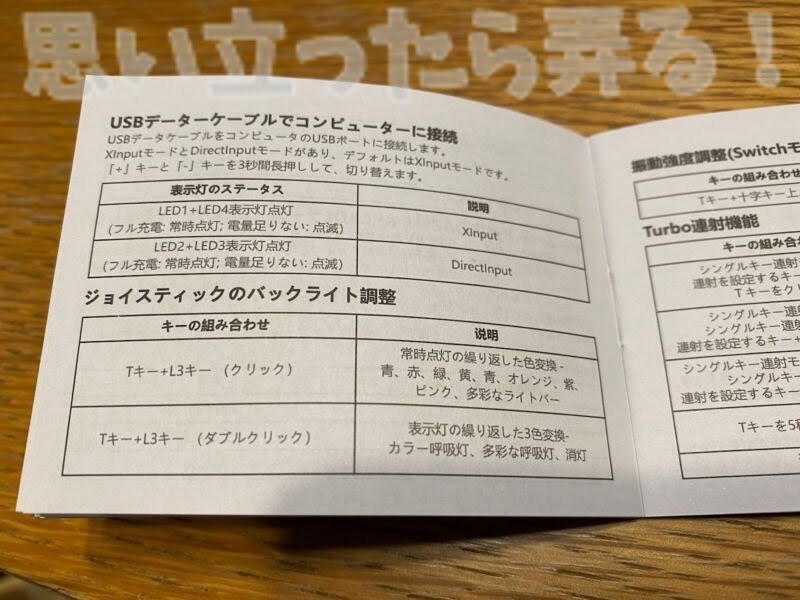 思い立ったら弄る！
USBデーターケーブルでコンピューターに接続
USBデータケーブルをコンピュータのUSBポートに接続します。
XInputモードとDirectInputモードがあり、デフォルトはXInputモードです。
「+」キーと「-」キーを3秒間長押しして、切り替えます。
表示灯のステータス
説明
LED1+LED4表示灯点灯
(フル充電: 常時点灯; 電量足りない: 点滅)
XInput
LED2+LED3表示灯点灯
(フル充電: 常時点灯; 電量足りない: 点滅)
DirectInput
ジョイスティックのバックライト調整
キーの組み合わせ
说明
Tキー+L3キー (クリック)
常時点灯の繰り返した色変換 -
青、赤、緑、黄、青、オレンジ、紫、
ピンク、多彩なライトバー
Tキー+L3キー (ダブルクリック)
表示灯の繰り返した3色変換-
カラー呼吸灯、多彩な呼吸灯、消灯
振動強度調整(Switchモ
キーの組み合わせ
Tキー+十字キー上
Turbo連射機能
キーの組み合わ
シングルキー連射
連射を設定するキー
Tキーをクリ
シングルキー連射
シングルキー連射
連射を設定するキー+
シングルキー連射モ
シングルキー
連射を設定するキー
Tキーを5秒